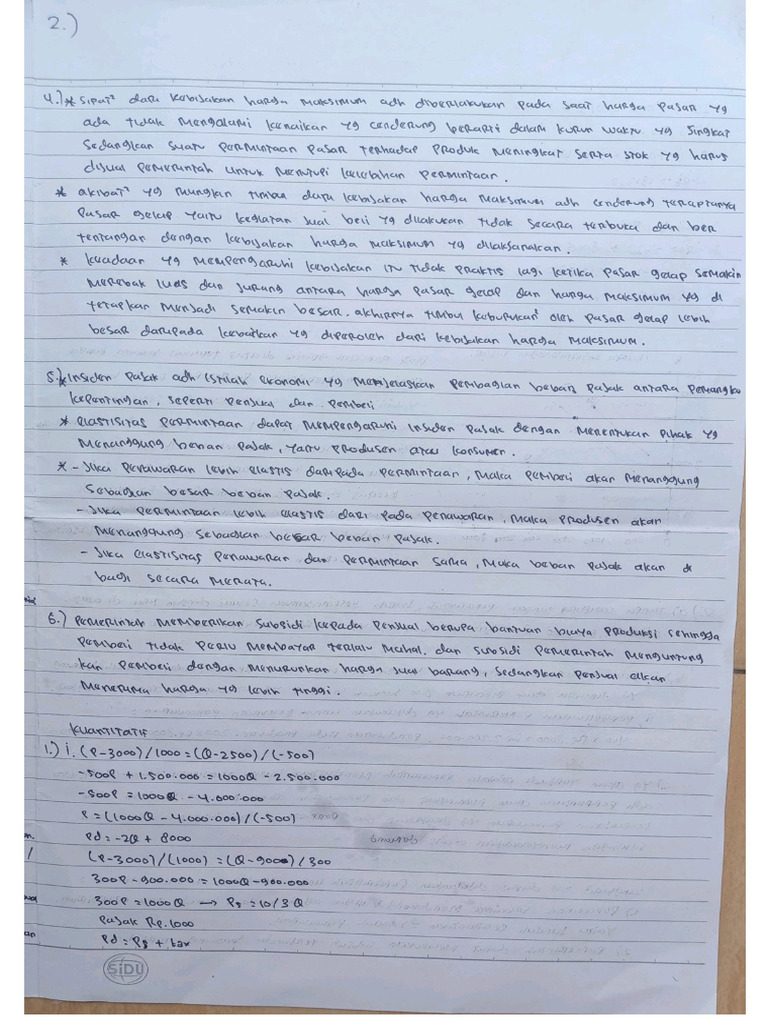 2.)
4.) * Sipat² dari kebijakan harga maksimum adh diberlakukan pada saat harga pasar yg
ada tidak mengalami kenaikan yg cenderung berarti dalam kurun waktu yg singkat
sedangkan suatu permintaan pasar terhadap produk meningkat serta stok yg harus
dijual pemerintah untuk menutupi kelebihan permintaan.
* akibat² yg mungkin timbul dari kebijakan harga maksimum adh cenderung terciptanya
pasar gelap yaitu kegiatan jual beli yg dilakukan tidak secara terbuka dan ber
tentangan dengan kebijakan harga maksimum yg dilaksanakan.
* keadaan yg mempengaruhi kebijakan itu tidak praktis lagi ketika pasar gelap semakin
merebak luas dan jurang antara harga pasar gelap dan harga maksimum yg di
tetapkan menjadi semakin besar. akhirnya timbul keburukan² oleh pasar gelap lebih
besar daripada kebaikan yg diperoleh dari kebijakan harga maksimum.
5.) * Insiden pajak adh istilah ekonomi yg menjelaskan pembagian beban pajak antara pemangku
kepentingan, seperti penjual dan pembeli
* elastisitas permintaan dapat mempengaruhi insiden pajak dengan menentukan pihak yg
menanggung beban pajak, yaitu produsen atau konsumen.
* - Jika penawaran lebih elastis daripada permintaan, maka pembeli akan menanggung
sebagian besar beban pajak.
- Jika permintaan lebih elastis dari pada penawaran, maka produsen akan
menanggung sebagian besar beban pajak.
- Jika elastisitas penawaran dan permintaan sama, maka beban pajak akan di
bagi secara merata.
6.) Pemerintah memberikan subsidi kepada penjual berupa bantuan biaya produksi sehingga
pembeli tidak perlu membayar terlalu mahal. dan subsidi pemerintah menguntung
kan pembeli dengan menurunkan harga jual barang, sedangkan penjual akan
menerima harga yg lebih tinggi.
Kuantitatif
1.) i. (P-3000)/1000 = (Q-2500)/(-500)
-500P + 1.500.000 = 1000Q - 2.500.000
-500P = 1000Q - 4.000.000
P = (1000Q - 4.000.000)/(-500)
Pd = -2Q + 8000
(P-3000)/(1000) = (Q-9000)/300
300P - 900.000 = 1000Q - 900.000
300P = 1000Q → Ps = 10/3 Q
pajak Rp. 1000
Pd = Ps + tax
SiDU